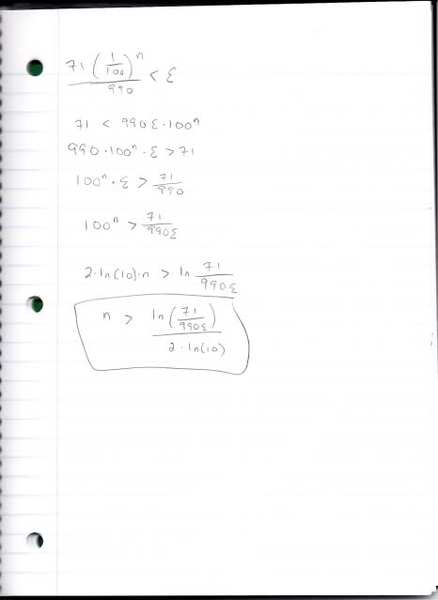 71(1/100)^n/990 < ε
71 < 990ε·100^n
990·100^n·ε > 71
100^n·ε > 71/990
100^n > 71/990ε
2·ln(10)·n > ln 71/990ε
n > ln(71/990ε)/2·ln(10)